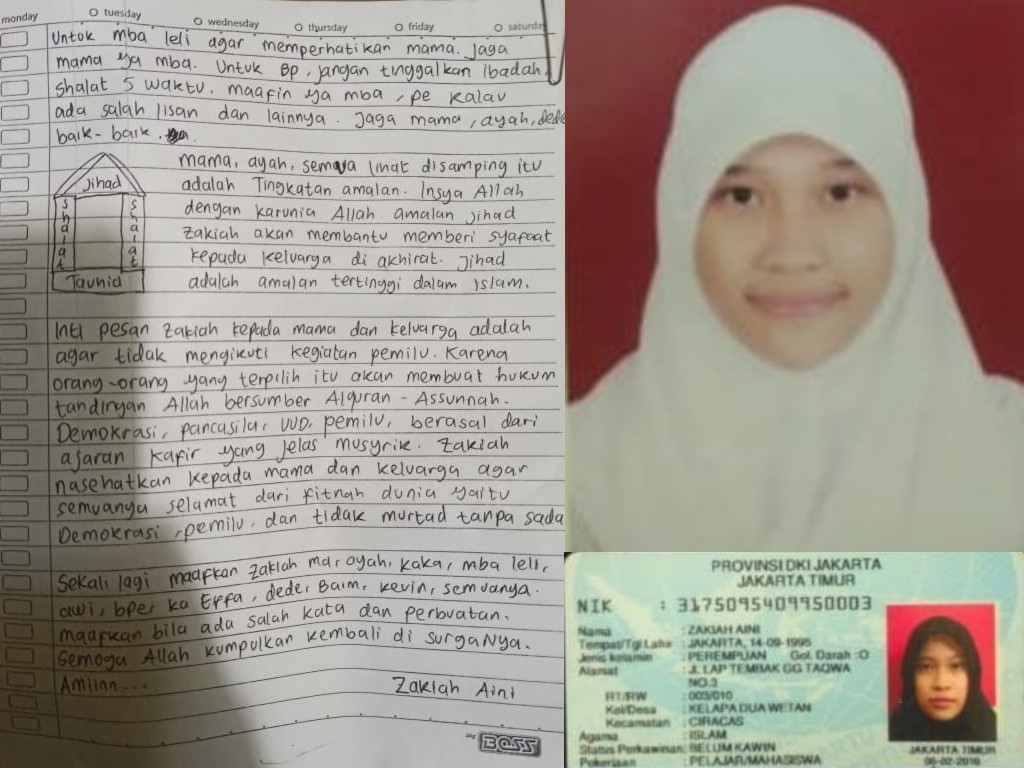 monday
tuesday
wednesday
thursday
friday
saturday
Untuk mba leli agar memperhatikan mama. Jaga
mama ya mba. Untuk Bp, jangan tinggalkan ibadah.
shalat 5 waktu. maafin ya mba, pe kalau
ada salah lisan dan lainnya. Jaga mama, ayah, dede
baik-baik.
mama, ayah, semua lihat disamping itu
adalah Tingkatan amalan. Insya Allah
dengan karunia Allah amalan jihad
zakiah akan membantu memberi syafaat
kepada keluarga di akhirat. Jihad
adalah amalan tertinggi dalam islam.
Jihad
shalat
shalat
Tauhid
Inti pesan zakiah kepada mama dan keluarga adalah
agar tidak mengikuti kegiatan pemilu. Karena
orang-orang yang terpilih itu akan membuat hukum
tandingan Allah bersumber Alquran - Assunnah.
Demokrasi, pancasila, UUD, pemilu, berasal dari
ajaran kafir yang jelas musyrik. Zakiah
nasehatkan kepada mama dan keluarga agar
semuanya selamat dari fitnah dunia yaitu
Demokrasi, pemilu, dan tidak murtad tanpa sada
Sekali lagi maafkan zakiah ma, ayah, kaka, mba leli,
awi, bpe, ka Effa, dede, Baim, kevin, semuanya.
maafkan bila ada salah kata dan perbuatan.
Semoga Allah kumpulkan kembali di surgaNya.
Amiinn...
Zakiah Aini
BOSS
PROVINSI DKI JAKARTA
JAKARTA TIMUR
NIK : 3175095409950003
Nama : ZAKIAH AINI
Tempat/Tgl Lahir : JAKARTA, 14-09-1995
Jenis kelamin : PEREMPUAN Gol. Darah :O
Alamat : JL LAP TEMBAK GG TAQWA
NO.3
RT/RW : 003/010
Kel/Desa : KELAPA DUA WETAN
Kecamatan : CIRACAS
Agama : ISLAM
Status Perkawinan: BELUM KAWIN
Pekerjaan : PELAJAR/MAHASISWA
JAKARTA TIMUR